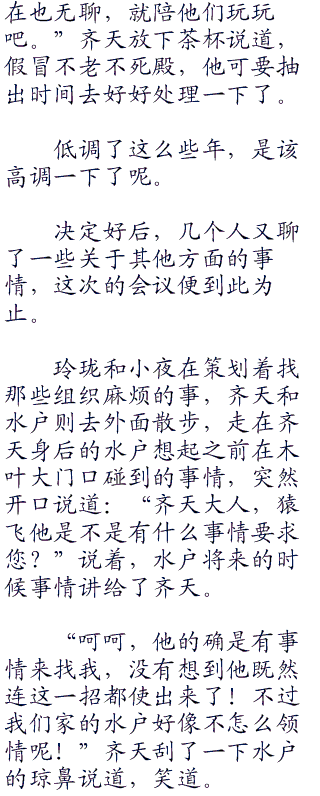 在也无聊，就陪他们玩玩
吧。”齐天放下茶杯说道，
假冒不老不死殿，他可要抽
出时间去好好处理一下了。
低调了这么些年，是该
高调一下了呢。
决定好后，几个人又聊
了一些关于其他方面的事
情，这次的会议便到此为
止。
玲珑和小夜在策划着找
那些组织麻烦的事，齐天和
水户则去外面散步，走在齐
天身后的水户想起之前在木
叶大门口碰到的事情，突然
开口说道：“齐天大人，猿
飞他是不是有什么事情要求
您？”说着，水户将来的时
候事情讲给了齐天。
“呵呵，他的确是有事
情来找我，没有想到他既然
连这一招都使出来了！不过
我们家的水户好像不怎么领
情呢！”齐天刮了一下水户
的琼鼻说道，笑道。